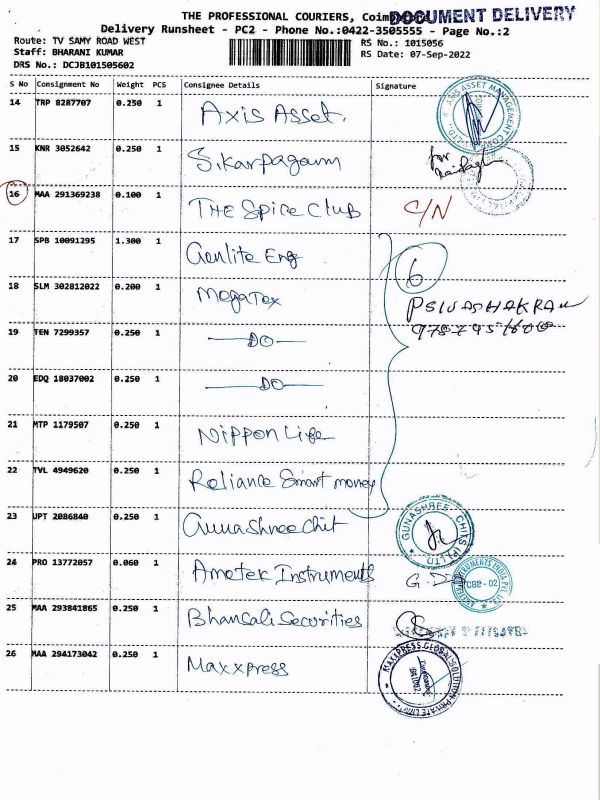 THE PROFESSIONAL COURIERS,
DOCUMENT DELIVERY
Delivery Runsheet - PC2 - Phone No.:0422-3505555 - Page No.:2
Route: TV SAMY ROAD WEST
RS No.: 1015056
Staff: BHARANI KUMAR
RS Date: 07-Sep-2022
DRS No.: DCJB101505602
S No Consignment No Weight PCS Consignee Details Signature
14 TRP 8287707 0.250 1 Axis Asset.
AXIS ASSET MANAGEMENT
15 KNR 3052642 0.250 1 S.karpagam
for
16 MAA 291369238 0.100 1 THE Spice Club C/N
17 SPB 10091295 1.300 1 Genlite Eng
6
18 SLM 302812022 0.200 1 MegaTex
19 TEN 7299357 0.250 1 DO
20 EDQ 18037002 0.250 1 DO
21 MTP 1179507 0.250 1 Nippon Life
22 TVL 4949620 0.250 1 Reliance Smart money
23 UPT 2086840 0.250 1 Gunashree Chit
GUNASHREE CHITS (P) LTD
24 PRO 13772057 0.060 1 Ametek Instruments
INSTRUMENTS INDIA PVT. CBE - 02
25 MAA 293841865 0.250 1 Bhansali Securities
26 MAA 294173042 0.250 1 Maxxpress
MAXXPRESS GLOBAL SOLUTION PRIVATE LIMITED